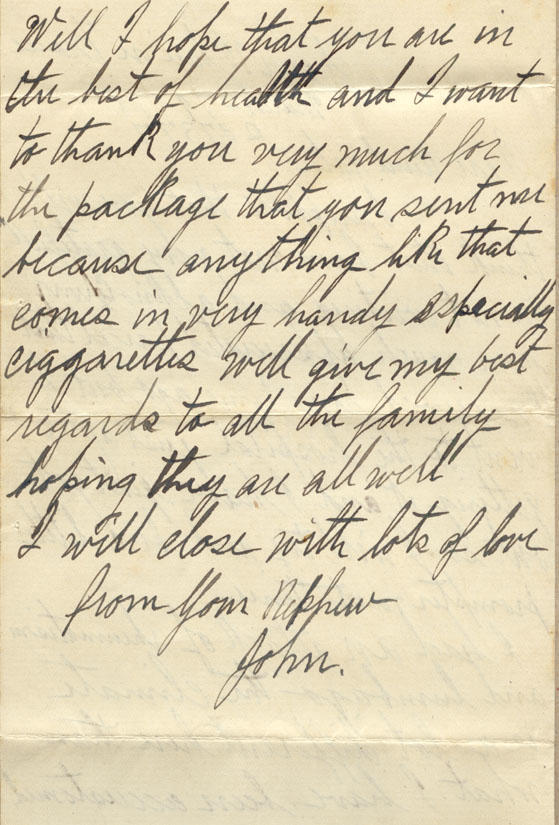 Well I hope that you are in
the best of health and I want
to thank you very much for
the package that you sent me
because anything like that
comes in very handy especially
ciggarettes well give my best
regards to all the family
hoping they are all well
I will close with lots of love
from Your Nephew
John.